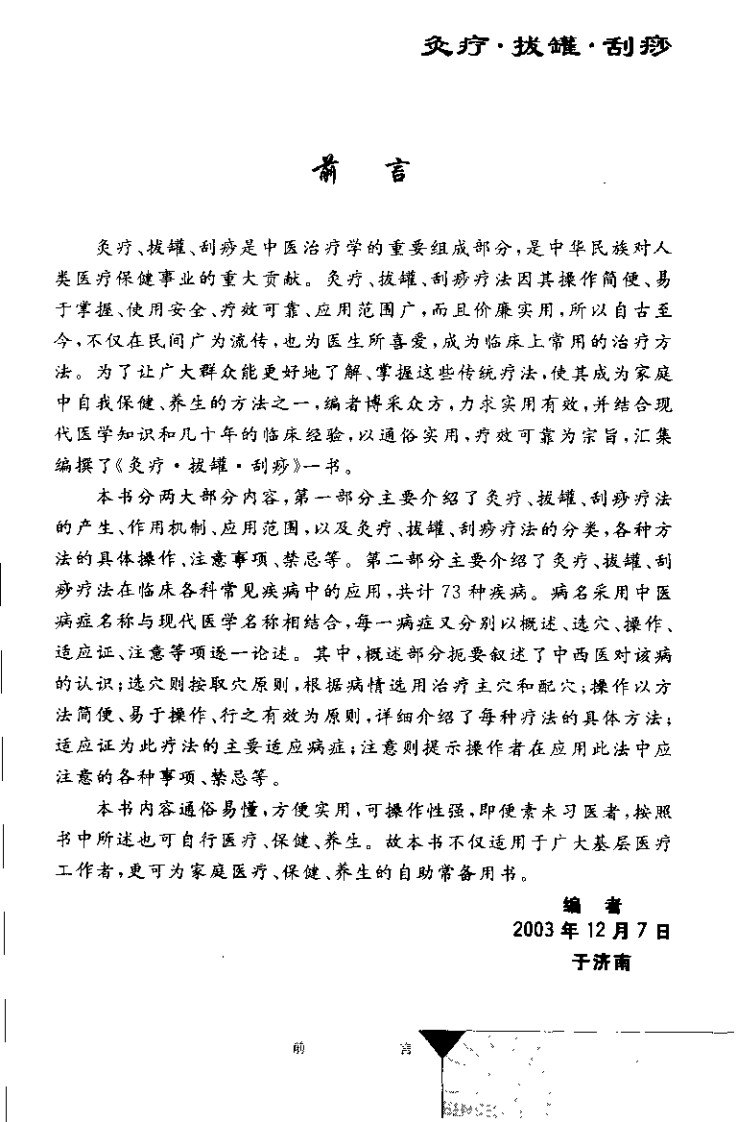 灸疗·拔罐·刮痧
前 言
灸疗、拔罐、刮痧是中医治疗学的重要组成部分,是中华民族对人
类医疗保健事业的重大贡献。灸疗、拔罐、刮痧疗法因其操作简便、易
于掌握、使用安全、疗效可靠、应用范围广,而且价廉实用,所以自古至
今,不仅在民间广为流传,也为医生所喜爱,成为临床上常用的治疗方
法。为了让广大群众能更好地了解、掌握这些传统疗法,使其成为家庭
中自我保健、养生的方法之一,编者博采众方,力求实用有效,并结合现
代医学知识和几十年的临床经验,以通俗实用,疗效可靠为宗旨,汇集
编撰了《灸疗·拔罐·刮痧》一书。
本书分两大部分内容,第一部分主要介绍了灸疗、拔罐、刮痧疗法
的产生、作用机制、应用范围,以及灸疗、拔罐、刮痧疗法的分类,各种方
法的具体操作、注意事项、禁忌等。第二部分主要介绍了灸疗、拔罐、刮
痧疗法在临床各科常见疾病中的应用,共计 73 种疾病。病名采用中医
病症名称与现代医学名称相结合,每一病症又分别以概述、选穴、操作、
适应证、注意等项逐一论述。其中,概述部分扼要叙述了中西医对该病
的认识;选穴则按取穴原则,根据病情选用治疗主穴和配穴;操作以方
法简便、易于操作、行之有效为原则,详细介绍了每种疗法的具体方法;
适应证为此疗法的主要适应病症;注意则提示操作者在应用此法中应
注意的各种事项、禁忌等。
本书内容通俗易懂,方便实用,可操作性强,即便素未习医者,按照
书中所述也可自行医疗、保健、养生。故本书不仅适用于广大基层医疗
工作者,更可为家庭医疗、保健、养生的自助常备用书。
编 者
2003 年 12 月 7 日
于济南
前 言